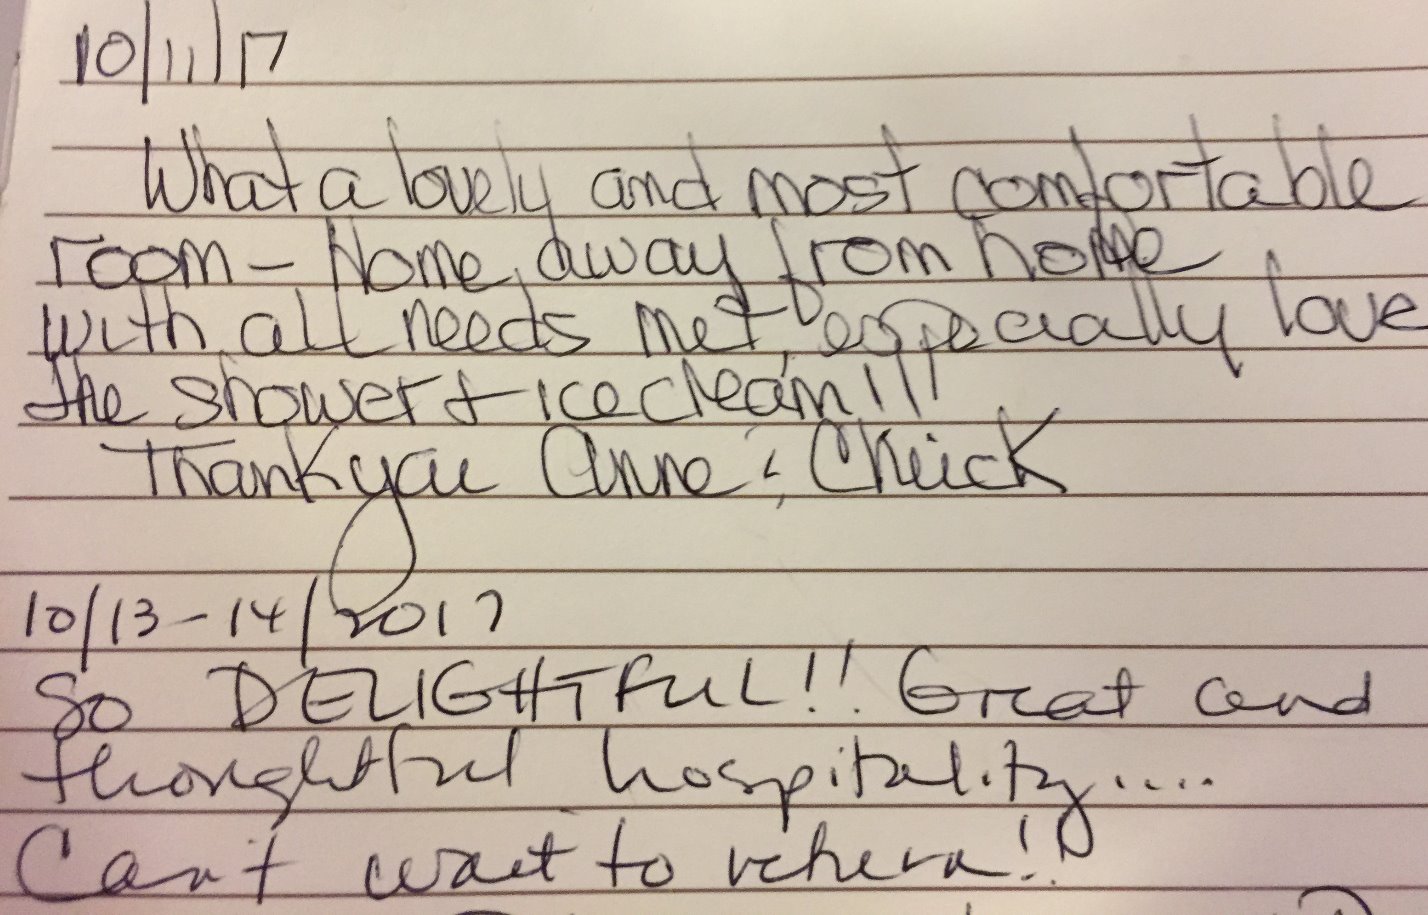 10/11/17
What a lovely and most comfortable
room - Home away from home
with all needs met, especially love
the shower + ice cream!!!
Thank you Anne & Chuck
10/13-14/2017
So DELIGHTFUL!! Great and
thoughtful hospitality....
Can't wait to return!!